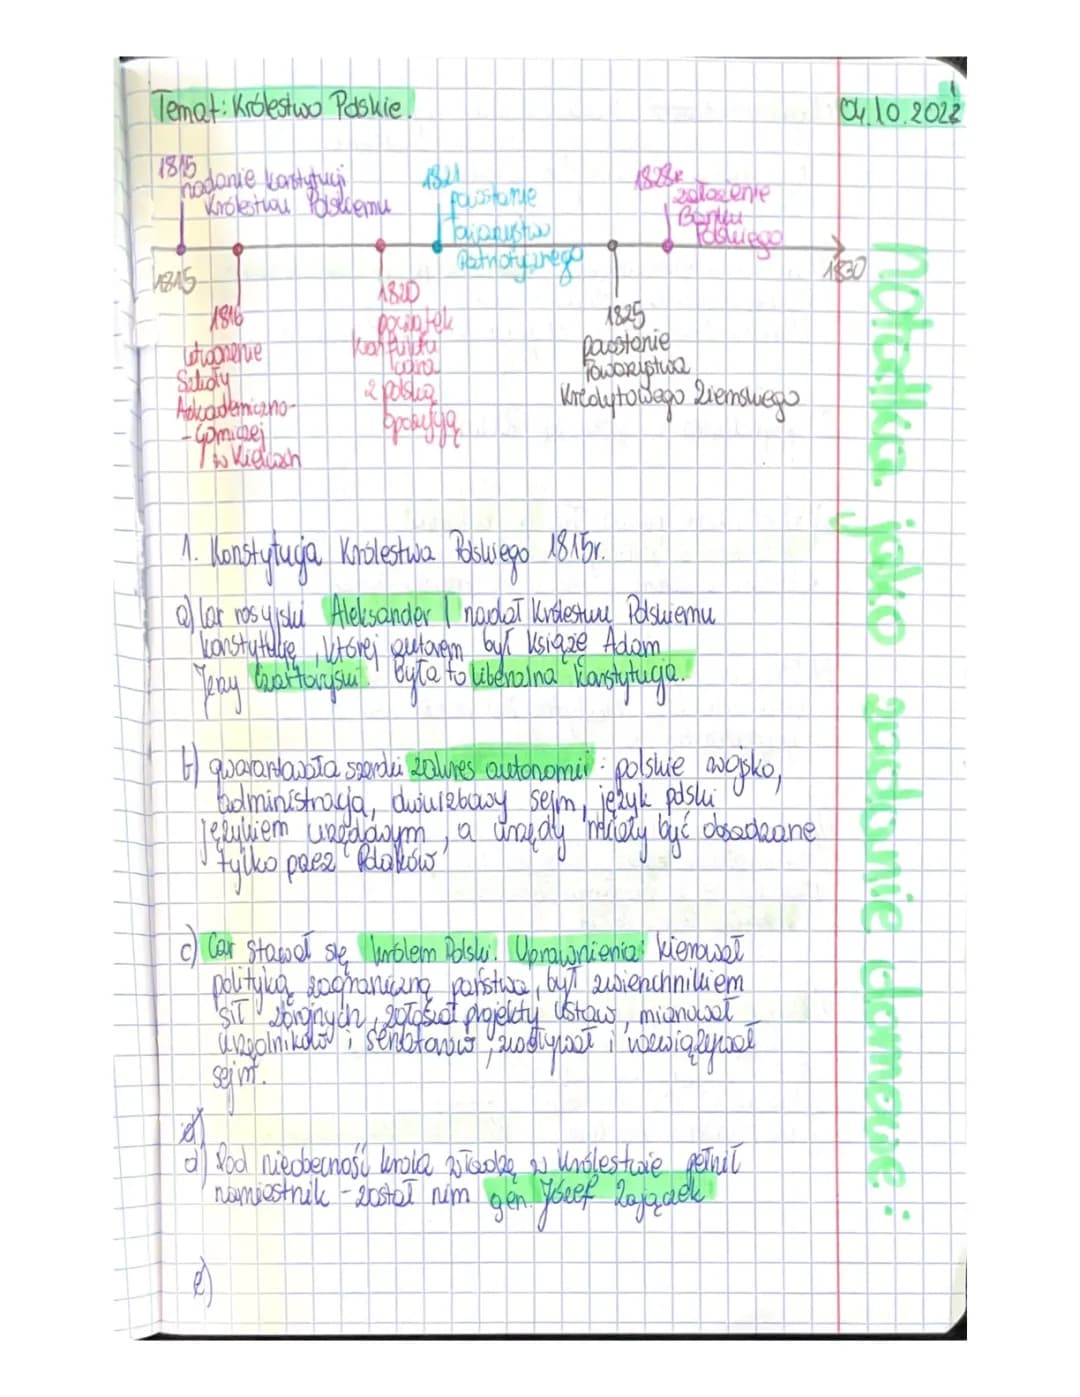 Temat: Królestwo Polskie.
04.10.2022
1815
nadanie konstytucji
Królestwu Polskiemu
1821
powstanie
Towarzystwa
Patriotycznego
1828r
założenie
Banku
Polskiego
1815
1830
1816
utworzenie
Szkoły
Adkademiczno-
-Górniczej
w Kielcach
1820
początek
konfliktu
cara
z polską
opozycją
1825
powstanie
Towarzystwa
Kredytowego Ziemskiego
notatka jako zadanie domowe:
1. Konstytucja Królestwa Polskiego 1815r.
a) Car rosyjski Aleksander I nadał Królestwu Polskiemu
konstytucję, której autorem był książę Adam
Jerzy Czartoryski. Była to liberalna konstytucja.
b) gwarantowała szeroki zakres autonomii: polskie wojsko,
administracja, dwuizbowy sejm, język polski
językiem urzędowym, a urzędy miały być obsadzane
tylko przez Polaków
c) Car stawał się królem Polski. Uprawnienia: kierował
polityką zagraniczną państwa, był zwierzchnikiem
sił zbrojnych, zgłaszał projekty ustaw, mianował
urzędników i senatorów, zwoływał i rozwiązywał
sejm.
d) Pod niebecność króla władzę w Królestwie pełnił
namiestnik - został nim gen. Józef Zajączek
e)